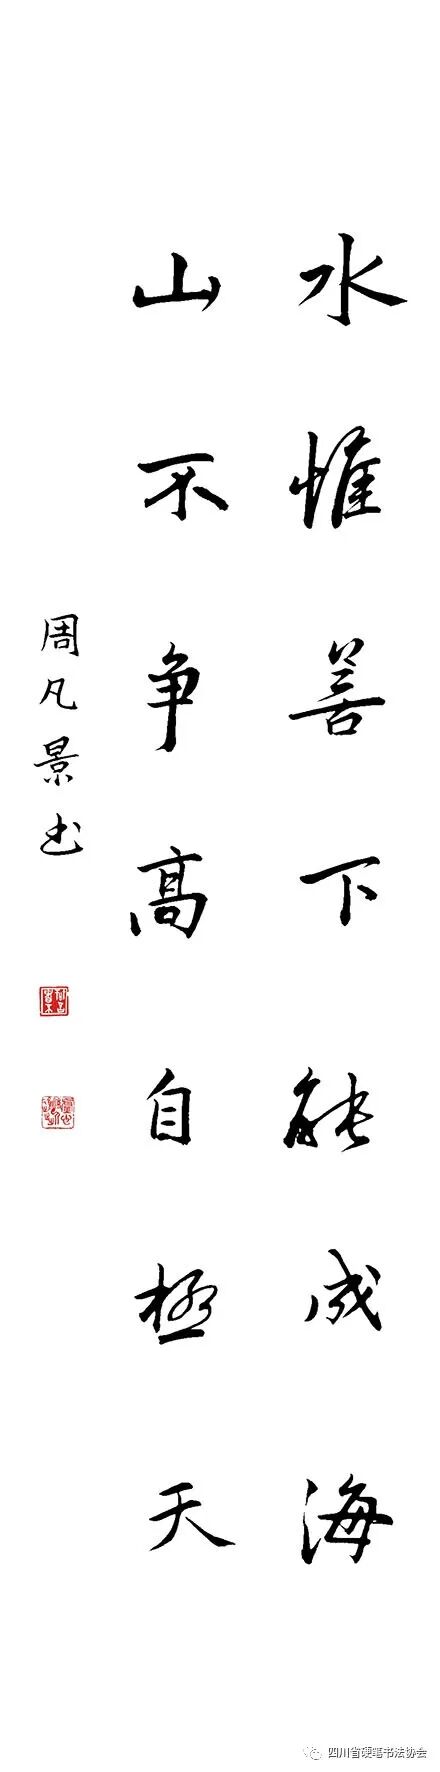 水惟善下能成海
山不争高自极天
周凡景书
四川省硬笔书法协会